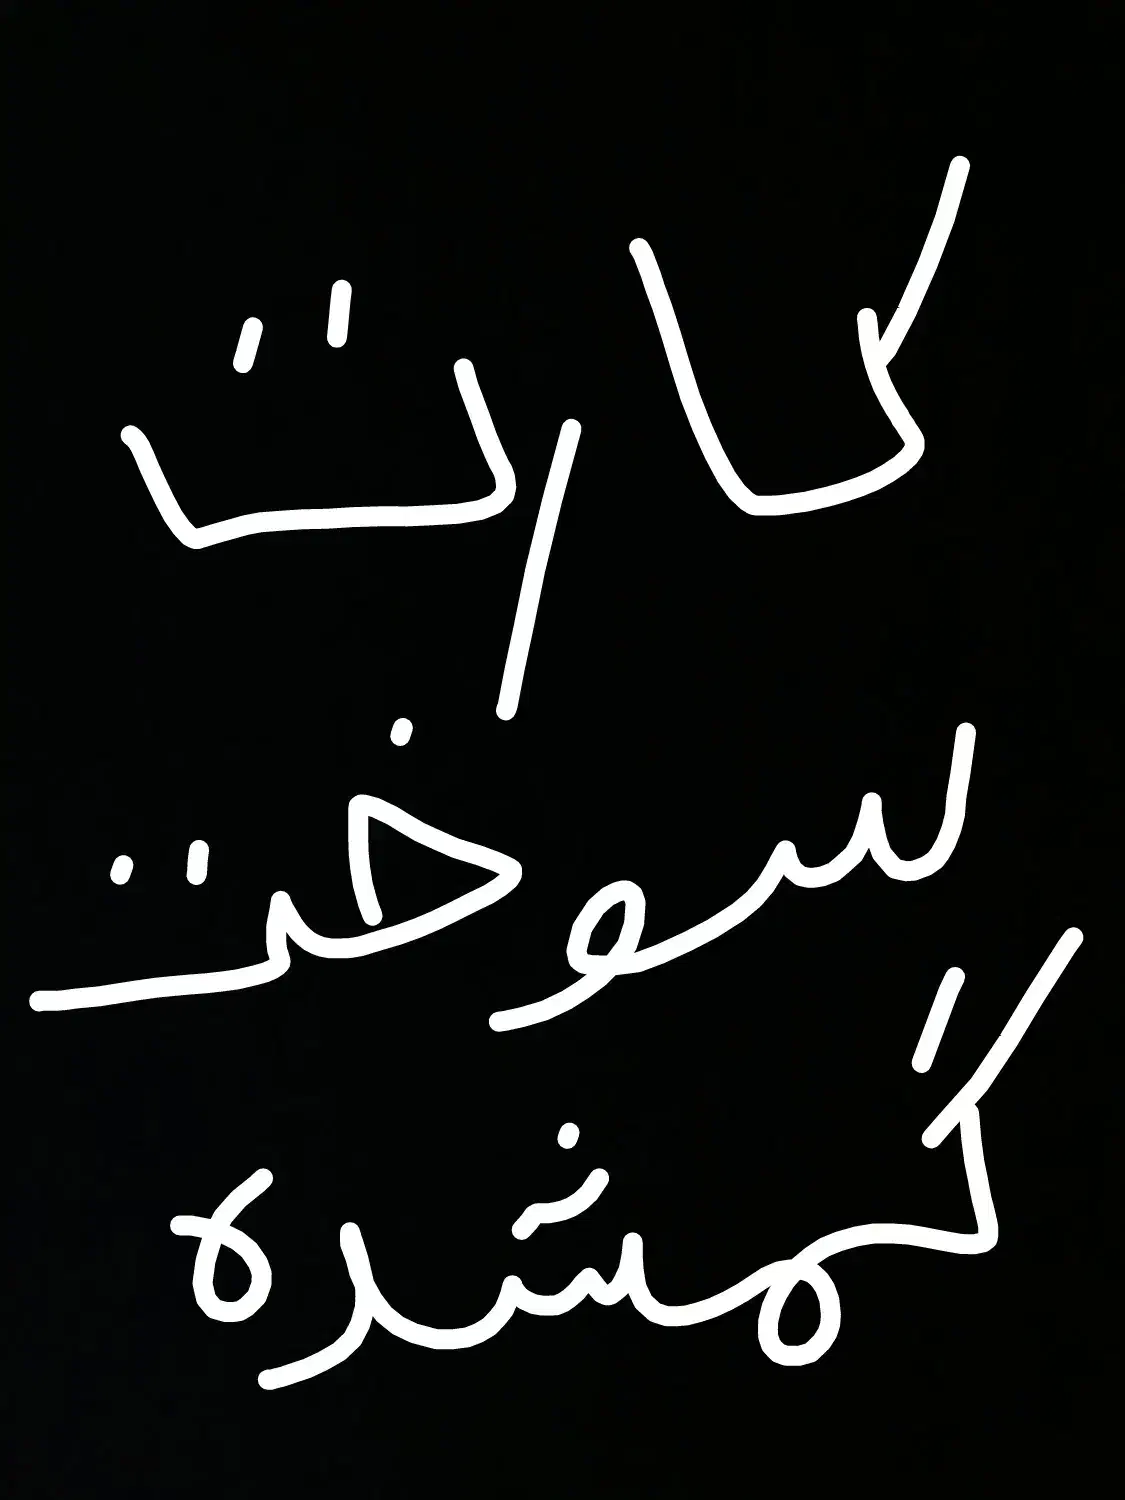 کارت
سوخت
گمشده